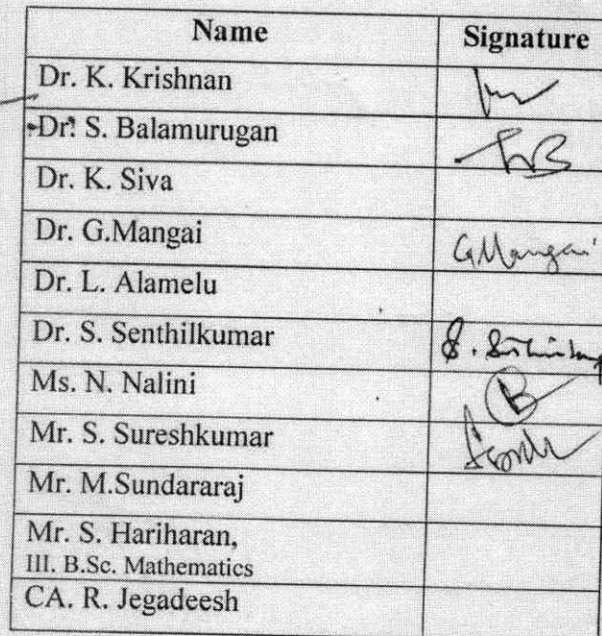 Name Signature
Dr. K. Krishnan
Dr. S. Balamurugan
Dr. K. Siva
Dr. G.Mangai G.Mangai
Dr. L. Alamelu
Dr. S. Senthilkumar
Ms. N. Nalini
Mr. S. Sureshkumar
Mr. M.Sundararaj
Mr. S. Hariharan,
III. B.Sc. Mathematics
CA. R. Jegadeesh